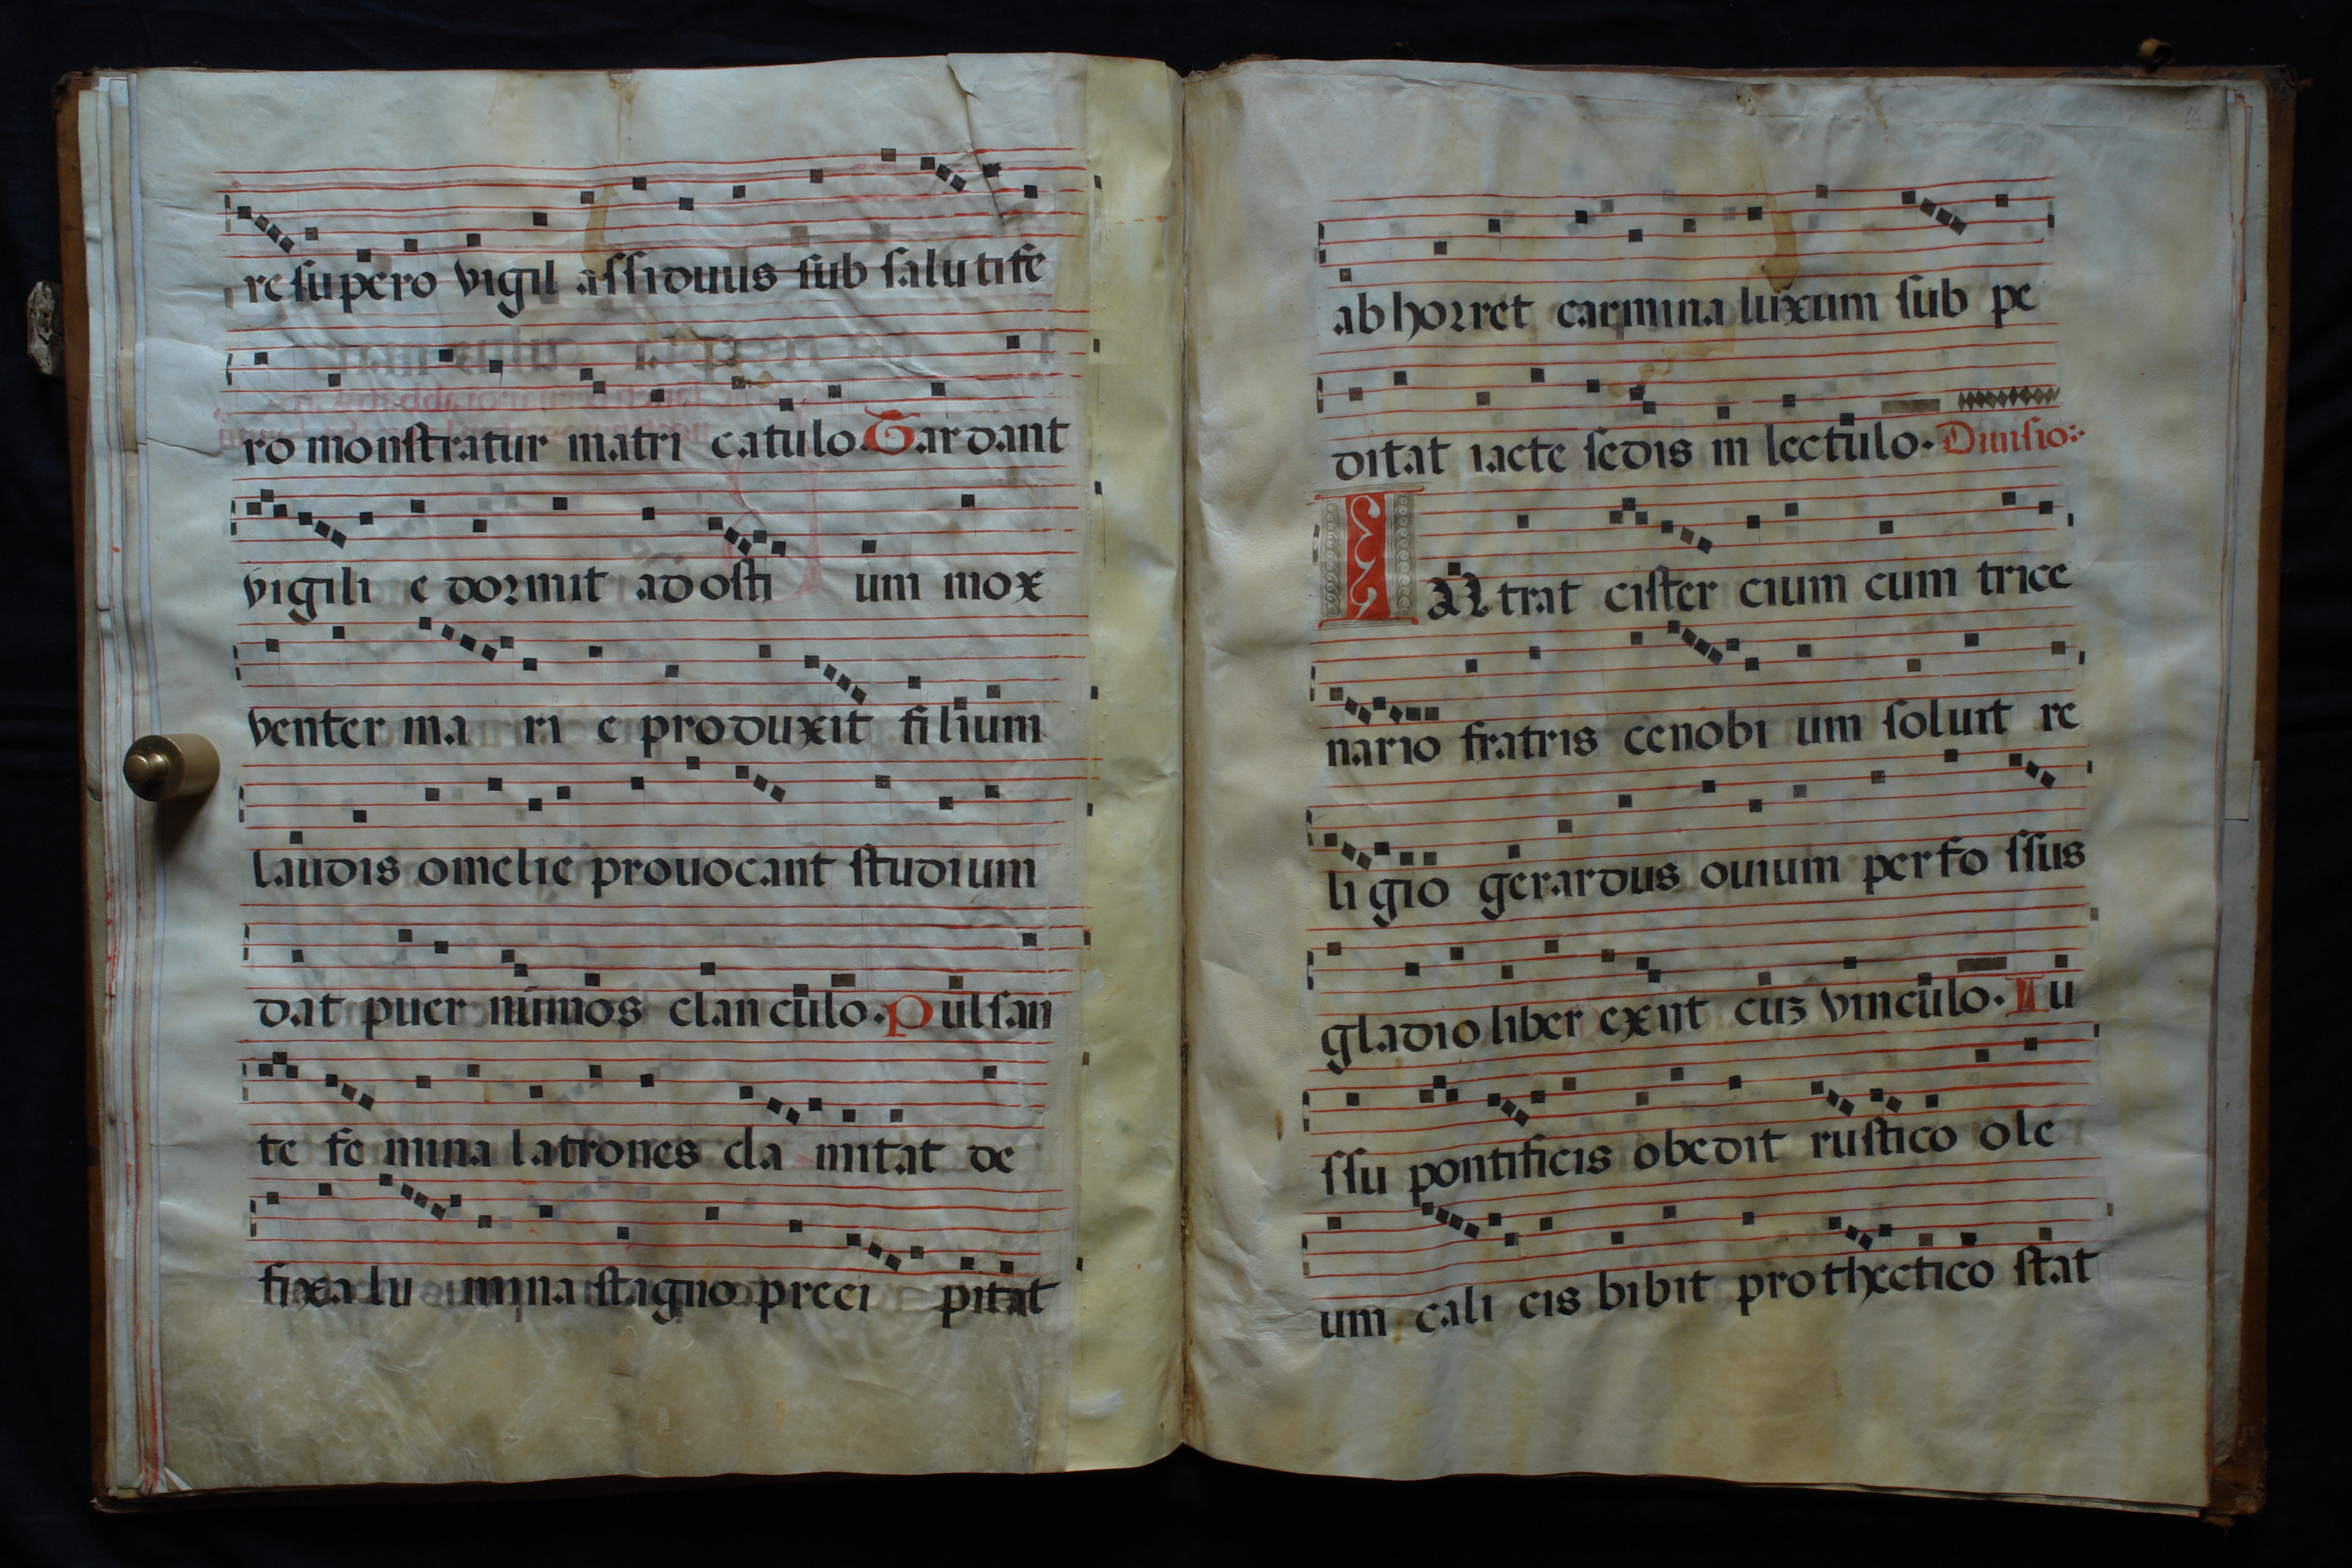 re supero vigil assiduus sub salutife
ro monstratur matri catulo. Tardant
vigili e dormit ad osti um mox
venter ma ri e produxit filium
laudis omelie provocant studium
dat puer nimios clanculo. Pulsan
te fe mina latrones cla mitat de
fixa lu mina stagno preci pitat
ab horret carmina luxum sub pe
ditat iacte sedis in lectulo. Divisio
INtrat cister cium cum trice
nario fratris cenobi um soluit re
ligio gerardus ovium perfo ssus
gladio liber exiit cuz vinculo. Iu
ssu pontificis obedit rustico ole
um cali cis bibit prothectico stat